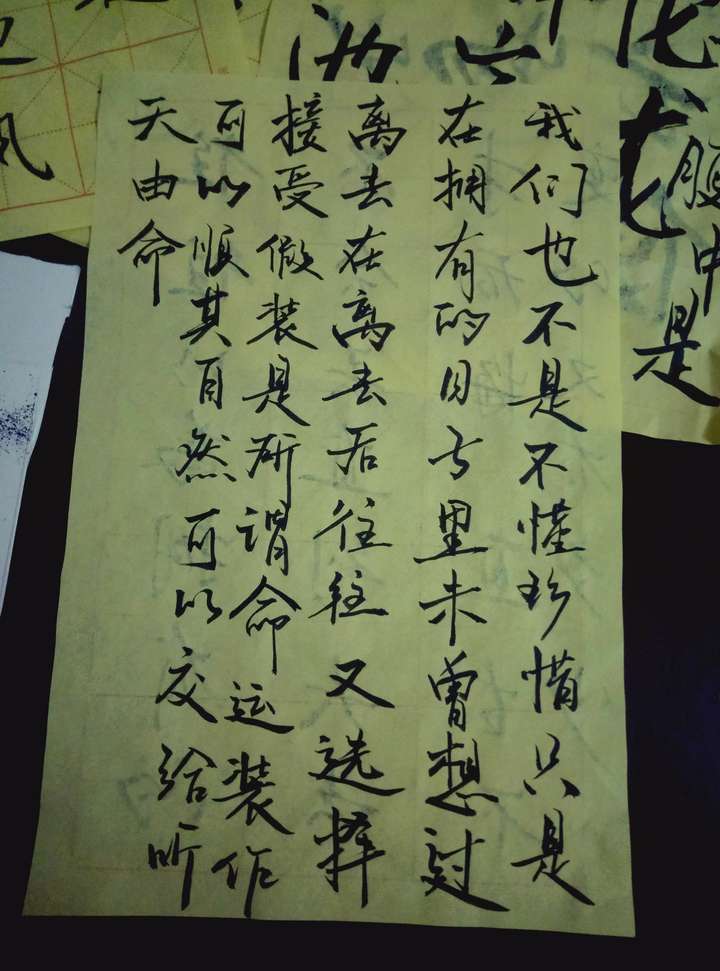 我们也不是不懂珍惜只是
在拥有的日子里未曾想过
离去在离去后往往又选择
接受假装是所谓命运装作
可以顺其自然可以交给听
天由命
腹中
是
风